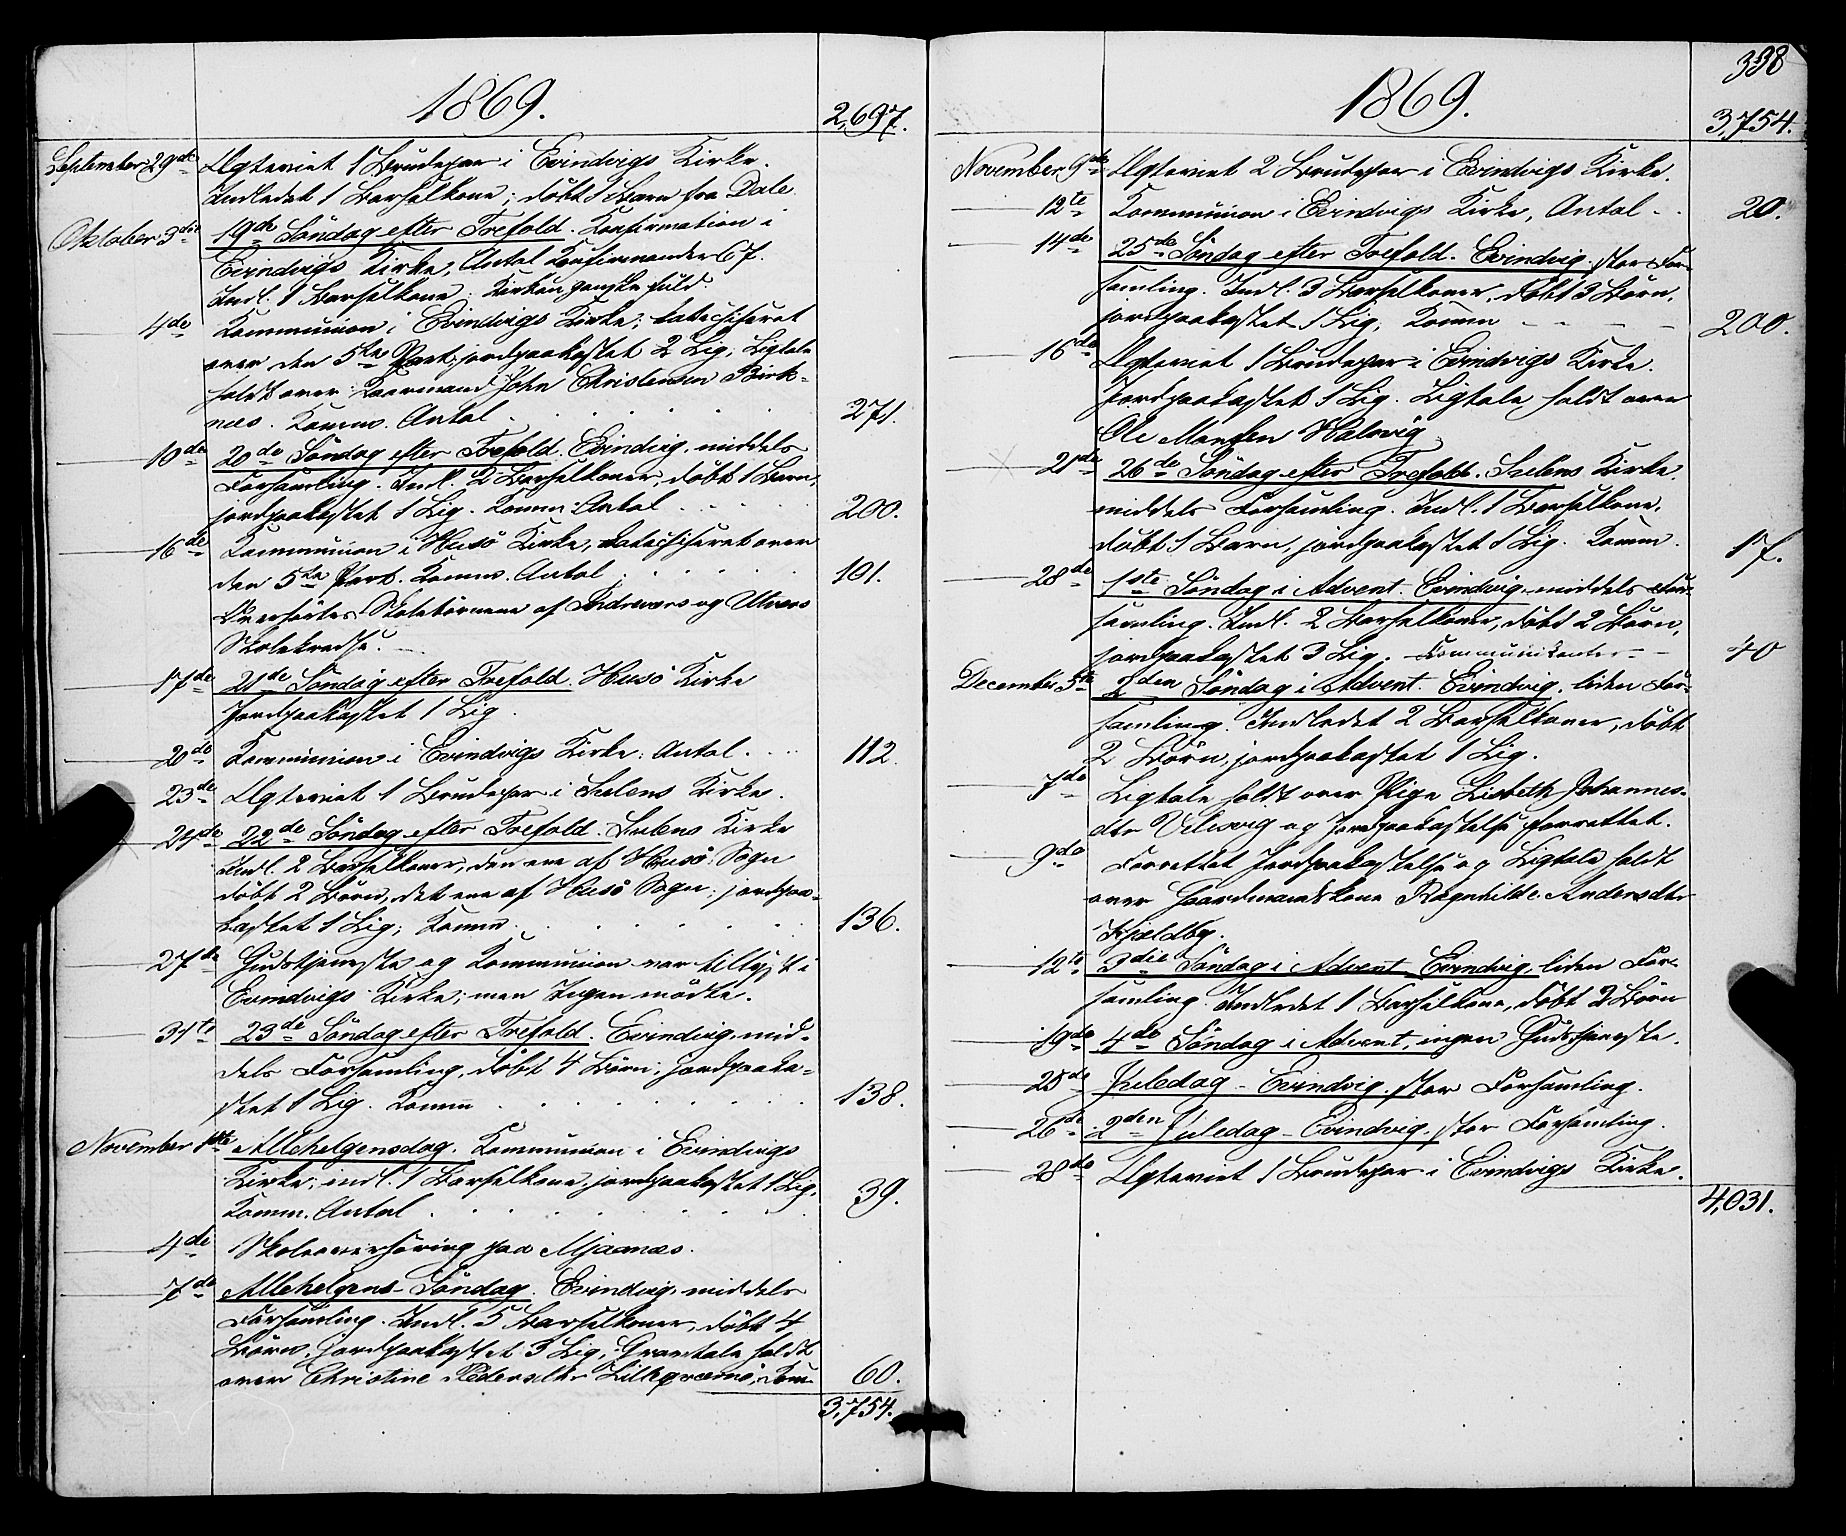 1869.
2,697.
September 29de Ægteviet 1 Brudepar i Evindvigs Kirke.
Indledet 1 Barselkone; döbt 1 Barn fra Dale.
Oktober 3die 19de Söndag efter Trefold. Konfirmation i
Evindvigs Kirke, Antal Konfirmander 67.
Indl. 1 Barselkone. Kirken ganske fuld.
4de Kommunion i Evindvigs Kirke; katechiseret
over den 5te Part; jordpaakastet 2 Lig; Ligtale
holdt over Kaarmand John Christensen Birk-
nes. Komm. Antal . . . . . . 271.
10de 20de Söndag efter Trefold. Evindvig. middels
Forsamling. Indl. 2 Barselkoner, döbt 1 Barn,
jordpaakastet 1 Lig. Komm. Antal . . . . 200.
16de Kommunion i Husö Kirke, katechiseret over
den 5te Part. Komm. Antal . . . . . 101.
Overhörtes Skolebörnene af Indrevers og Utvers
Skolekredse.
17de 21de Söndag efter Trefold. Husö Kirke
Jordpaakastet 1 Lig.
20de Kommunion i Evindvigs Kirke. Antal . . . 112.
23de Ægteviet 1 Brudepar i Sulens Kirke.
24de 22de Söndag efter Trefold. Sulens Kirke
Indl. 2 Barselkoner, den ene af Husö Sogn
döbt 2 Börn, det ene af Husö Sogn; jordpaa-
kastet 1 Lig; Komm. . . . . . . 136.
27de Gudstjeneste og Kommunion var tillyst i
Evindvigs Kirke; men Ingen mödte.
31te 23de Söndag efter Trefold. Evindvig, mid-
dels Forsamling, döbt 4 Börn; jordpaaka-
stet 1 Lig. Komm . . . . . . 138.
November 1ste Allehelgensdag. Kommunion i Evindvigs
Kirke; indl. 1 Barselkone, jordpaakastet 1 Lig.
Komm. Antal . . . . . . . 39.
4de Skoleoverhöring paa Mjaanæs.
7de Allehelgens-Söndag. Evindvig, middels
Forsamling. Indl. 5 Barselkoner, döbt 4
Börn, jordpaakastet 3 Lig; Gravtale holdt
over Christine Pedersdtr Kom. 60.
3,754.
338
1869.
3,754.
November 9de Ægteviet 2 Brudepar i Evindvigs Kirke.
12te Kommunion i Evindvigs Kirke, Antal . . 20.
14de 25de Söndag efter Trefold. Evindvig. stor For-
samling. Indl. 3 Barselkoner, döbt 3 Börn,
jordpaakastet 1 Lig, Komm - - - - 200.
16de Ægteviet 1 Brudepar i Evindvigs Kirke.
Jordpaakastet 1 Lig. Ligtale holdt over
Ole Monsen Halsvig
21de 26de Söndag efter Trefold. Sulens Kirke.
middels Forsamling. Indl. 1 Barselkone,
döbt 1 Barn, jordpaakastet 1 Lig. Komm. 17.
28de 1ste Söndag i Advent. Evindvig. middels For-
samling. Indl. 2 Barselkoner, döbt 2 Börn,
jordpaakastet 3 Lig. Communikanter - - 40
December 5te 2den Söndag i Advent. Evindvig, liden For-
samling. Indledet 2 Barselkoner, döbt
2 Börn, jordpaakastet 1 Lig.
7de Ligtale holdt over Pige Lisbeth Johannes-
dtr og Jordpaakastelse forrettet.
9de Forrettet Jordpaakastelse og Ligtale holdt
over Gaardmandskone Ragnhilde Andersdtr
Kjeldby.
12te 3die Söndag i Advent Evindvig, liden For-
samling. Indledet 1 Barselkone, döbt 2 Börn
19de 4de Söndag i Advent, ingen Gudstjeneste.
25de Juledag - Evindvig. stor Forsamling.
26de 2den Juledag - Evindvig. stor Forsamling.
28de Ægteviet 1 Brudepar i Evindvigs Kirke.
4,031.